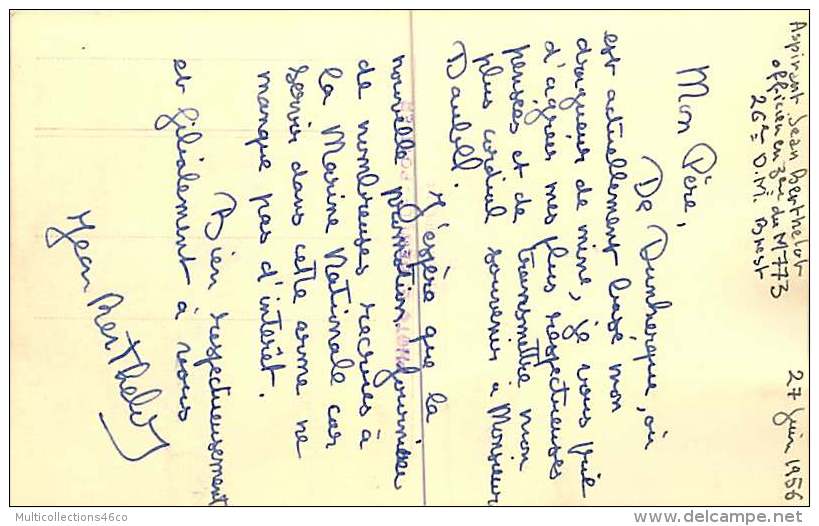 Aspirant Jean Berthelot
officier en 3ème du M773
26ème D.M. Brest
27 Juin 1956
Mon Père,
De Dunkerque, où
est actuellement basé mon
dragueur de mine, je vous prie
d'agréer mes plus respectueuses
pensées et de transmettre mon
plus cordial souvenir à Monsieur
Daubell.
J'espère que la
nouvelle promotion fournira
de nombreuses recrues à
la Marine Nationale car
servir dans cette arme ne
manque pas d'interêt.
Bien respectueusement
et filialement à vous
Jean Berthelot
Multicollections46co
delcampe.net